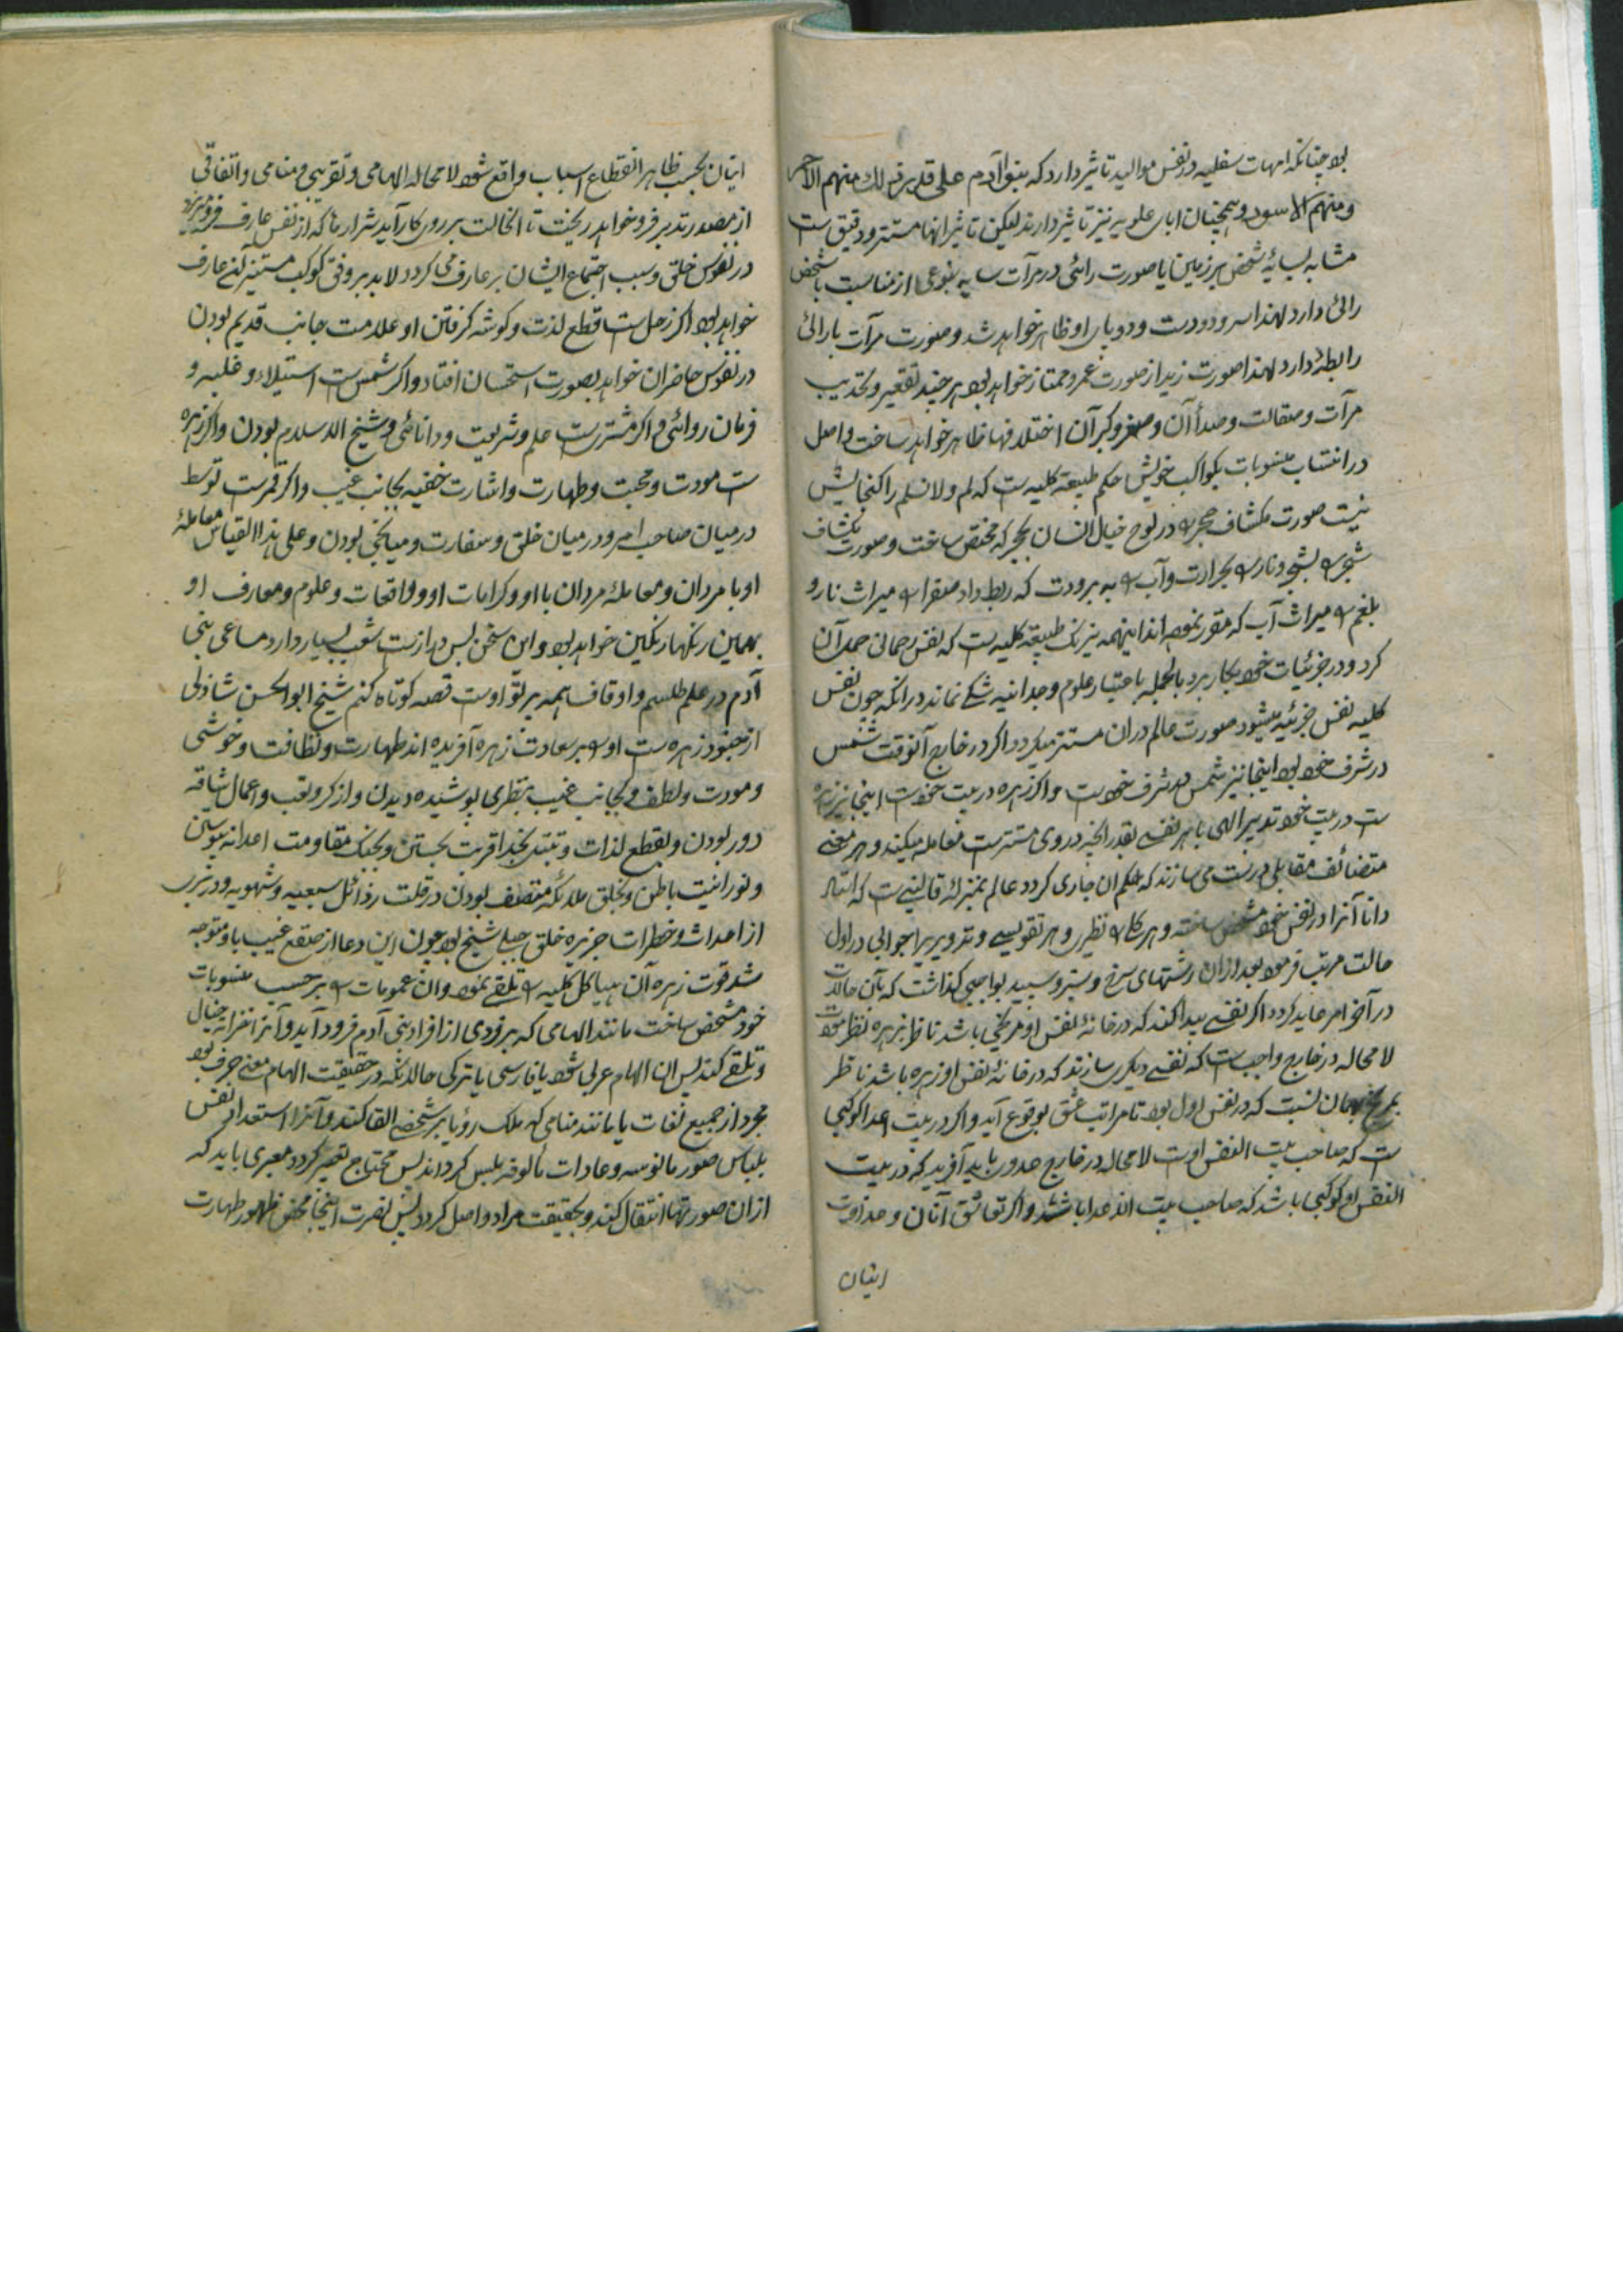 بود چنانکه امهات سفلیه در نفس موالید تاثیر دارد که بنو آدم علی قدر ذلک منهم الاحمر
ومنهم الاسود وهمچنان ابای علویه نیز تاثیر دارند لیکن تاثیر انها مستتر ودقیق ست
مشابه بسایهٔ شخص بر زمین یا صورت رائی در مرآت سایه بنوعی از مناسبت با شخص
رائی دارد لهذا سر ودو دست ودو پای او ظاهر خواهد شد وصورت مرآت با رائی
رابطهٔ دارد لهذا صورت زید از صورت عمرو ممتاز خواهد بود هر چند تقعیر وتحدیب
مرآت وصقالت وصدأ آن وصغر وکبر آن اختلافها ظاهر خواهد ساخت واصل
در انتساب منسوبات بکواکب خویش حکم طبیعة کلیه ست که لم ولا نسلم را گنجایش
نیست صورت مکشاف حجر را در لوح خیال انسان بحجر که مختص ساخت وصورت مکشاف
شجر را بشجر ونار را بحرارت وآب را به برودت که ربط داد صفرا را میراث نار و
بلغم را میراث آب که مقرر نموده اند اینهمه نیرنگ طبیعة کلیه ست که نفس رحمانی حمل آن
کرد ودر جزئیات خود بکار برد بالجمله باعتبار علوم وجدانیه شکی نماند در انکه چون نفس
کلیه نفس جزئیه میشود صورت عالم دران مستتر میگردد اگر در خارج آنوقت شمس
در شرف خود بود اینجا نیز شمس در شرف خود ست واگر زهره در بیت خود ست اینجا نیز زهره
ست در بیت خود تدبیر الهی با هر نفسی بقدر انچه در وی مستتر ست معامله میکند وهر معنی
متضائف مقابلی درست می سازند که حکم ان جاری گردد عالم بمنزلهٔ قالینی ست که استاد
دانا آنرا در نفس خود مشخص ساخته وهر گلی را نظیری وهر تقویسی وتدویری را جوابی در اول
حالت مرتب فرموده بعد ازان رشتهای سرخ وسبز وسپید بواجبی گذاشت که بآن حالت
در آخر امر عاید گردد اگر نفسی پیدا کنند که در خانهٔ نفس او مریخی باشد ناظر بزهره نظر مودت
لا محاله در خارج واجب ست که نفسی دیگری سازند که در خانهٔ نفس او زهره باشد ناظر
بمریخ بهمان نسبت که در نفس اول بود تا مراتب عشق بوقوع آید واگر در بیت اعدا کوکبی
ست که صاحب بیت النفس اوست لا محاله در خارج عدوی باید آفرید که در بیت
النفس او کوکبی باشد که صاحب بیت الاعدا باشد واگر تعاشق آنان وعداوت
اینان
اینان بحسب ظاهر انقطاع اسباب واقع شود لا محاله الهامی وتقریبی ومنامی واتفاقی
از مصدر تدبیر فرو خواهد ریخت تا انحالت بر روی کار آید شرارها که از نفس عارف فرو میریزد
در نفوس خلق وسبب اجتماع ایشان بر عارف می گردد لابد بر وفق کوکب مستنیر لنفس عارف
خواهد بود اگر زحل ست قطع لذت وگوشه گرفتن او علامت جانب قدیم بودن
در نفوس حاضران خواهد بصورت استحسان افتاد واگر شمس ست استیلاء وغلبه و
فرمان روائی واگر مشتری ست علم وشریعت ودانائی وشیخ الاسلام بودن واگر زهره
ست مودت ومحبت وطهارت واشارت خفیه بجانب غیب واگر قمر ست توسط
درمیان صاحب امر ودر میان خلق وسفارت ومیانجی بودن وعلی هذا القیاس معاملهٔ
او با مردان ومعاملهٔ مردان با او وکرامات او وواقعات وعلوم ومعارف او
بهمین رنگها رنگین خواهد بود واین سخن بس دراز ست شعب بسیار دارد مساعی بنی
آدم در علم طلسم واوفاق همه پرتو اوست قصه کوتاه کنم شیخ ابو الحسن شاذلی
از جنود زهره ست او را بر سعادت زهره آفریده اند طهارت ونظافت وخوشی
ومودت ولطف وبجانب غیب بنظری پوشیده دیدن واز کر وتعب واعمال شاقه
دور بودن وبقطع لذات وتبتل بخدا قربت بجستن وبجنگ مقاومت اعدا نه پیوستن
ونورانیت باطن وبخلق ملائکه متصف بودن در قلت رذائل سبعیه وشهویه ودر تبری
از احداث وخطرات جزیره خلق جبلی شیخ بود چون این دعا از صقع غیب باو متوجه
شد قوت زهره آن هیاکل کلیه را تلقی نمود وان عمومات را بر حسب منسوبات
خود مشخص ساخت مانند الهامی که بر فردی از افراد بنی آدم فرود آید وآنرا خزانه خیال
وتلقی کند پس ان الهام عربی شود یا فارسی یا ترکی حالانکه در حقیقت الهام معنی صرف بود
مجرد از جمیع لغات یا مانند منامی که ملک رؤیا بر شخصی القا کند وآنرا استعداد نفس
بلباس صور مانوسه وعادات مالوفه ملبس گرداند پس محتاج تعبیر گردد معبری باید که
ازان صورتها انتقال کند وبحقیقت مراد واصل گردد پس نصرت اینجا محض ظهور طهارت